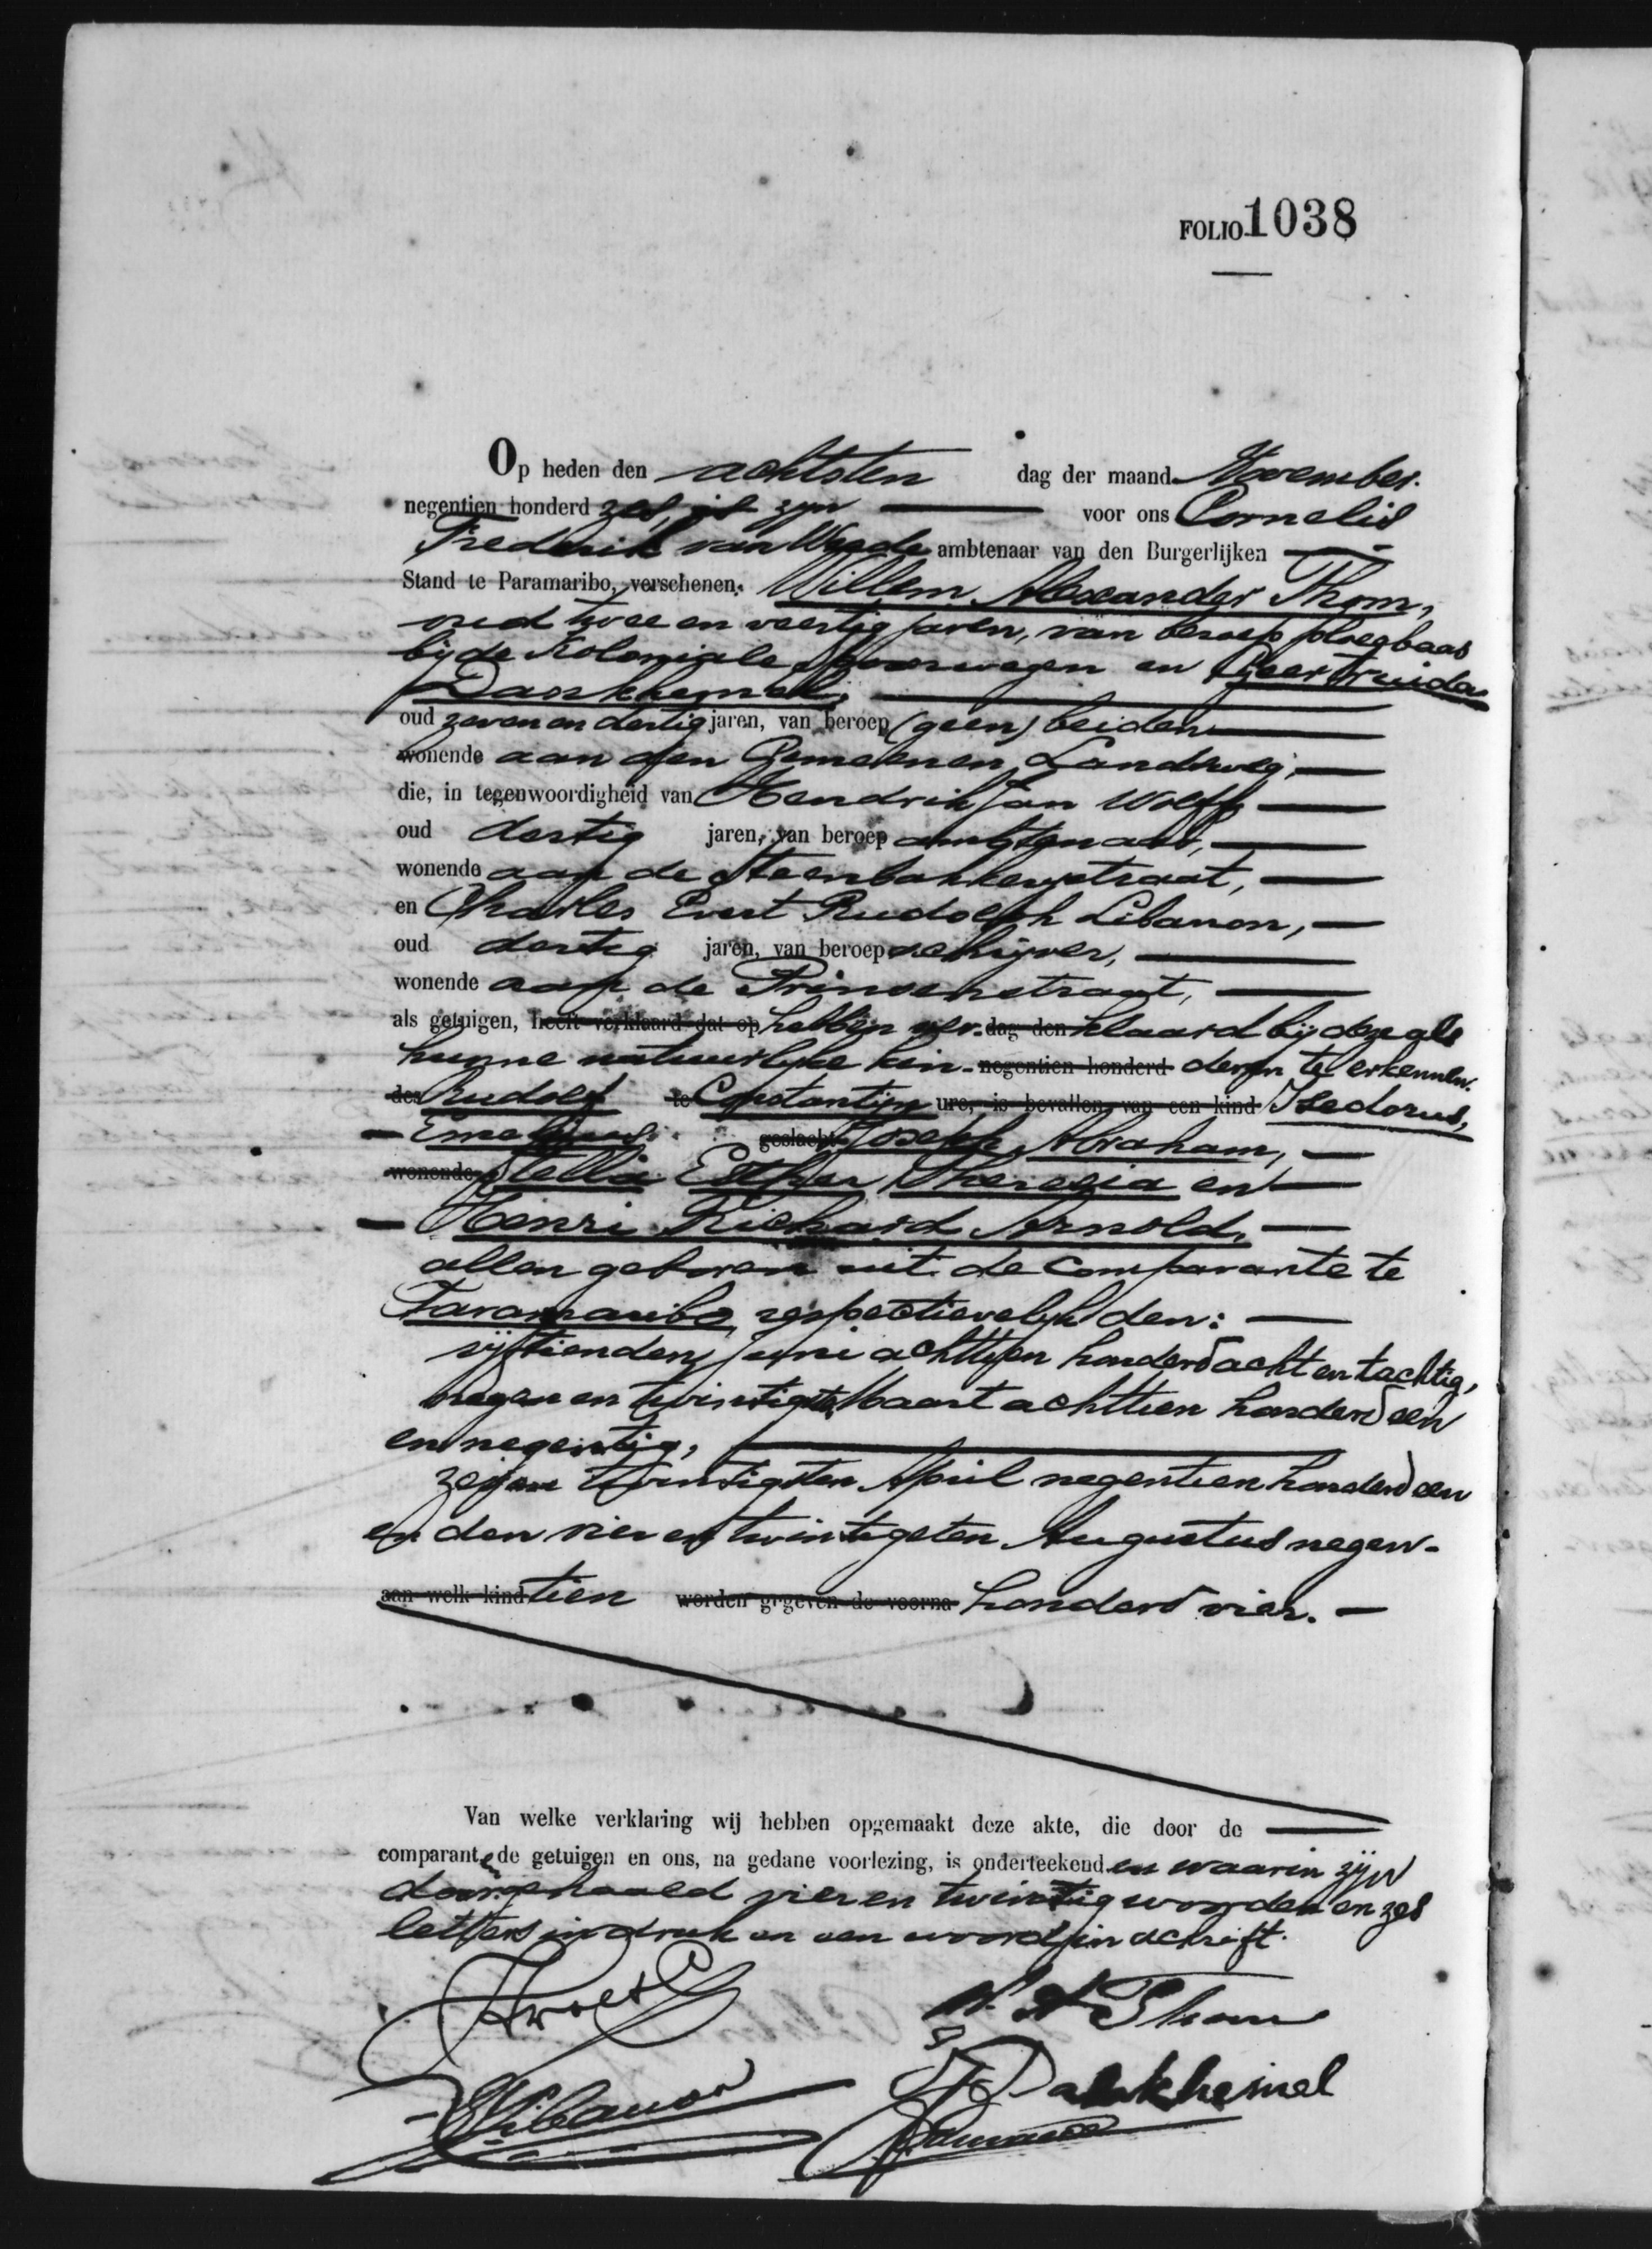 FOLIO 1038
Op heden den achtsten dag der maand November
negentien honderd zes, is zijn voor ons Cornelis
Frederik van Weede ambtenaar van den Burgerlijken
Stand te Paramaribo, verschenen: Willem Alexander Thom,
oud twee en veertig jaren, van beroep ploegbaas
bij de Koloniale Spoorwegen en Geertruida
oud zeven en dertig jaren, van beroep (geen) beiden
wonende aan den Gemeenen Landsweg,
die, in tegenwoordigheid van Hendrik Jan Wolff
oud dertig jaren, van beroep ambtenaar,
wonende aan de Steenbakkerijstraat,
en Charles Evert Rudolph Libanon,
oud dertig jaren, van beroep schrijver,
wonende aan de Prinsenstraat,
als getuigen, heeft verklaard dat op hebben ver- dag den klaard bij deze als
hunne natuurlijke kin- negentien honderd deren te erkennen:
des Rudolf te Constantijn ure, is bevallen van een kind Isedorus,
geslacht Joseph Abraham,
wonende Stella Esther Theresia en
Henri Richard Arnold,
allen geboren uit de Comparante te
Paramaribo, respectievelijk den:
vijftienden Juni achttien honderd acht en tachtig,
negen en twintigste Maart achttien honderd een
en negentig,
zeven twintigsten April negentien honderd een
en den vier en twintigsten Augustus negen-
aan welk kind tien worden gegeven de voorna honderd vier.
Van welke verklaring wij hebben opgemaakt deze akte, die door de
comparanten de getuigen en ons, na gedane voorlezing, is onderteekend en waarin zijn
doorgehaald vier en twintig woorden en zes
letters in druk en een woord in schrift.
HWolff
W. A. Thom
Libanon
Dankhemel